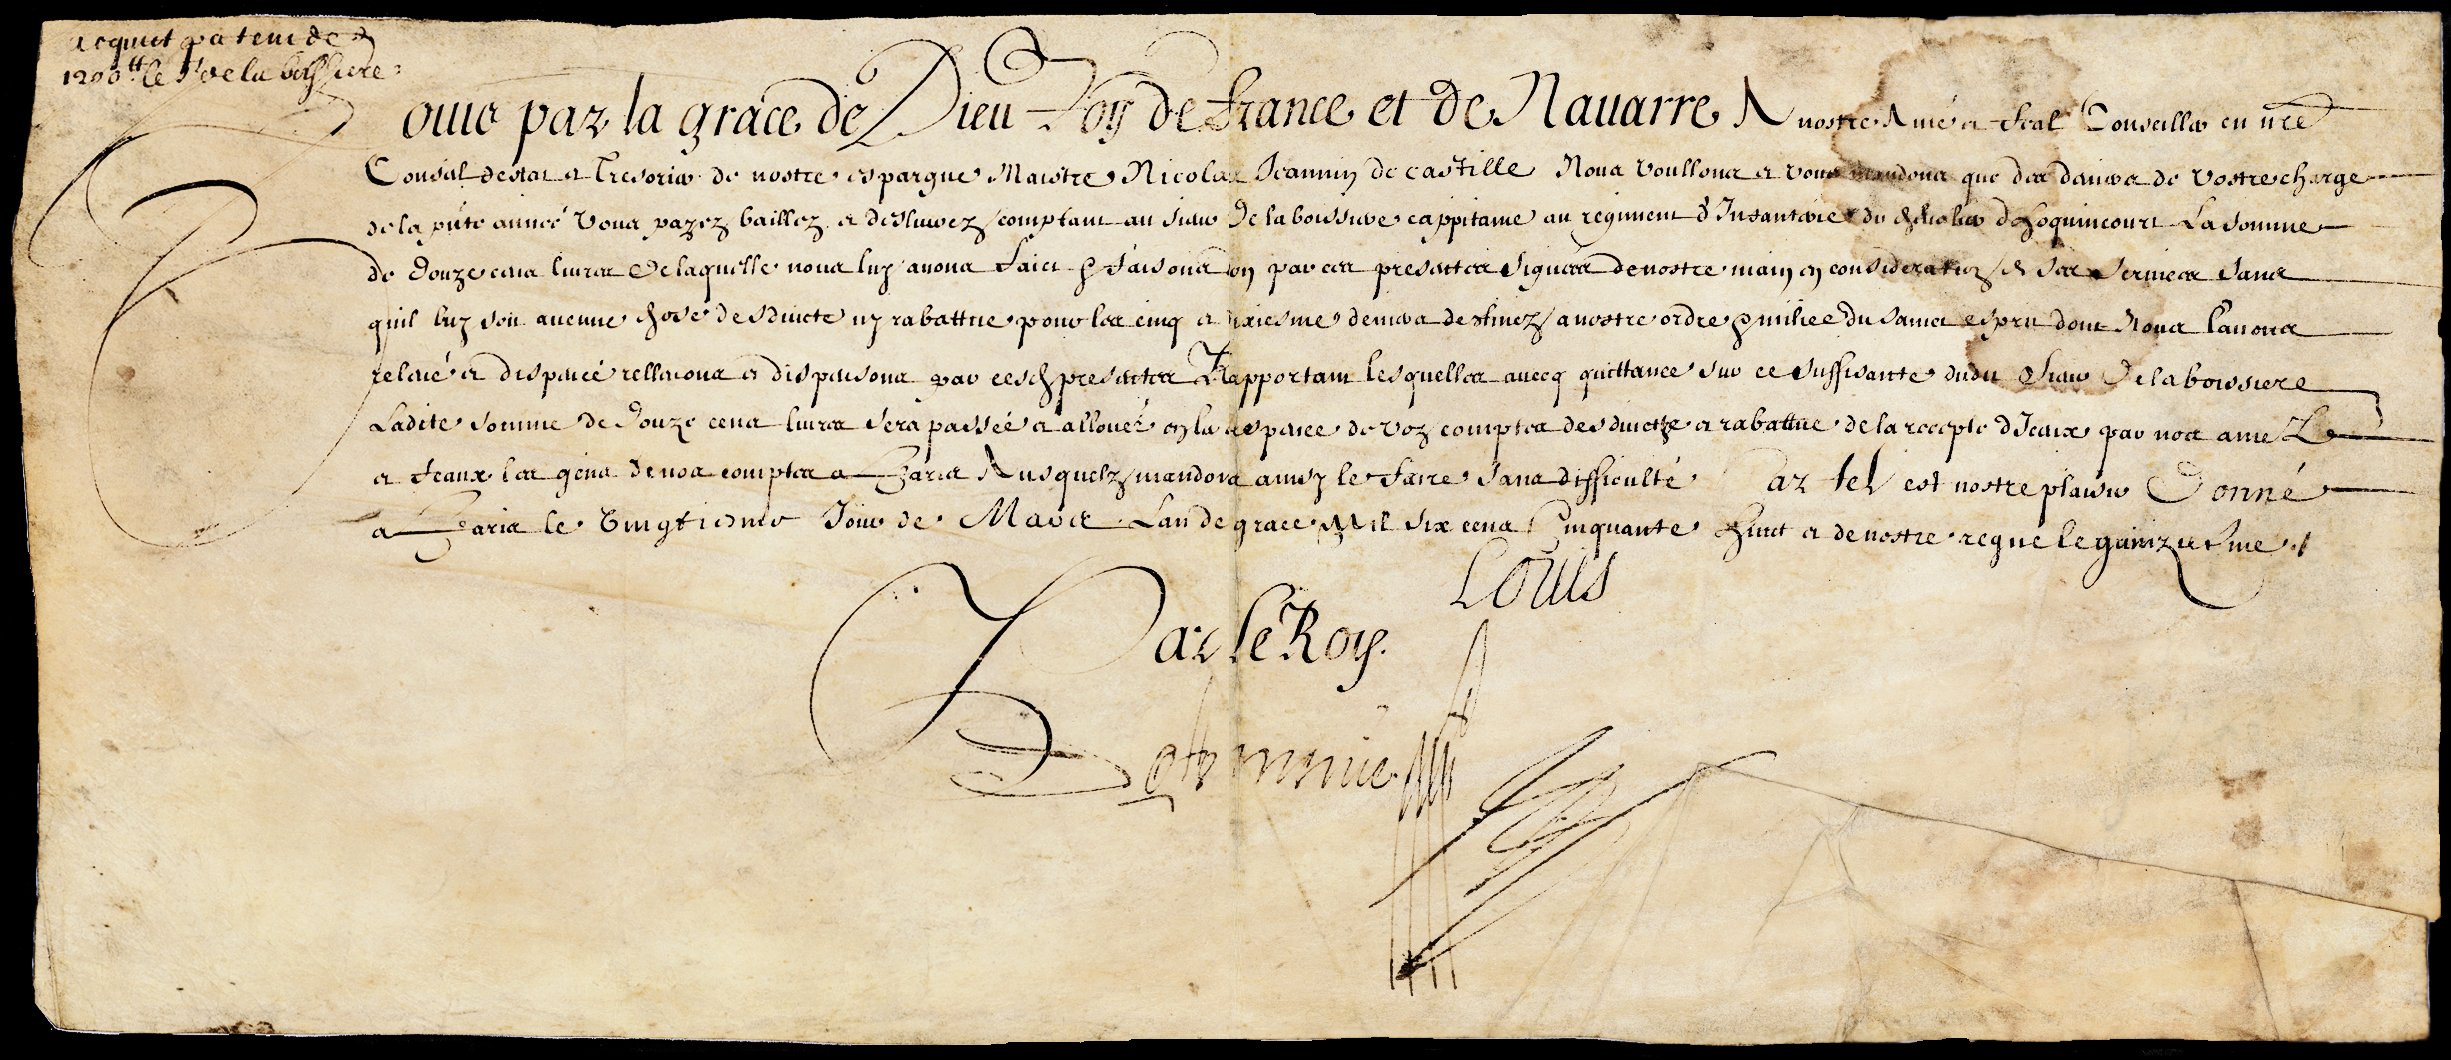 acquict patent de
1200ᵗᵗ le Sʳ de la boissiere
Louis par la grace de Dieu Roy de france et de Nauarre A nostre Amé et feal Conseiller en nre
Conseil destat et Tresorier de nostre espargne Maistre Nicolas Jeannin de castille Nous voullons et vous mandons que des deniers de vostre charge
de la pñte année vous payez baillez et desliurez comptant au sieur de la boissiere cappitaine au regiment d'Infanterie du dhocquincourt La somme
de douze cens liures de laquelle nous luy auons faict et faisons don par ces presentes signées de nostre main en consideration de ses seruices sans
quil luy soit aucune chose desduicte ny rabattue pour les cinq et deniers destinez a nostre ordre et milice du sainct esprit dont Nous l'auons
releué et dispencé relleuons et dispensons par cesd presentes Rapportant lesquelles auecq quittance sur ce suffisante dudit sieur de la boissiere
Ladite somme de douze cens liures sera passée et allouée en la despence de voz comptes desduicte et rabattue de la recepte d'Iceux par nos amez
et feaux les gens de nos comptes a Paris Ausquelz mandons ainsy le faire sans difficulté Car tel est nostre plaisir Donné
a Paris le vingtiesme Jour de Mars Lan de grace Mil six cens Cinquante huict et de nostre regne le quinziesme
Louis
Par le Roy